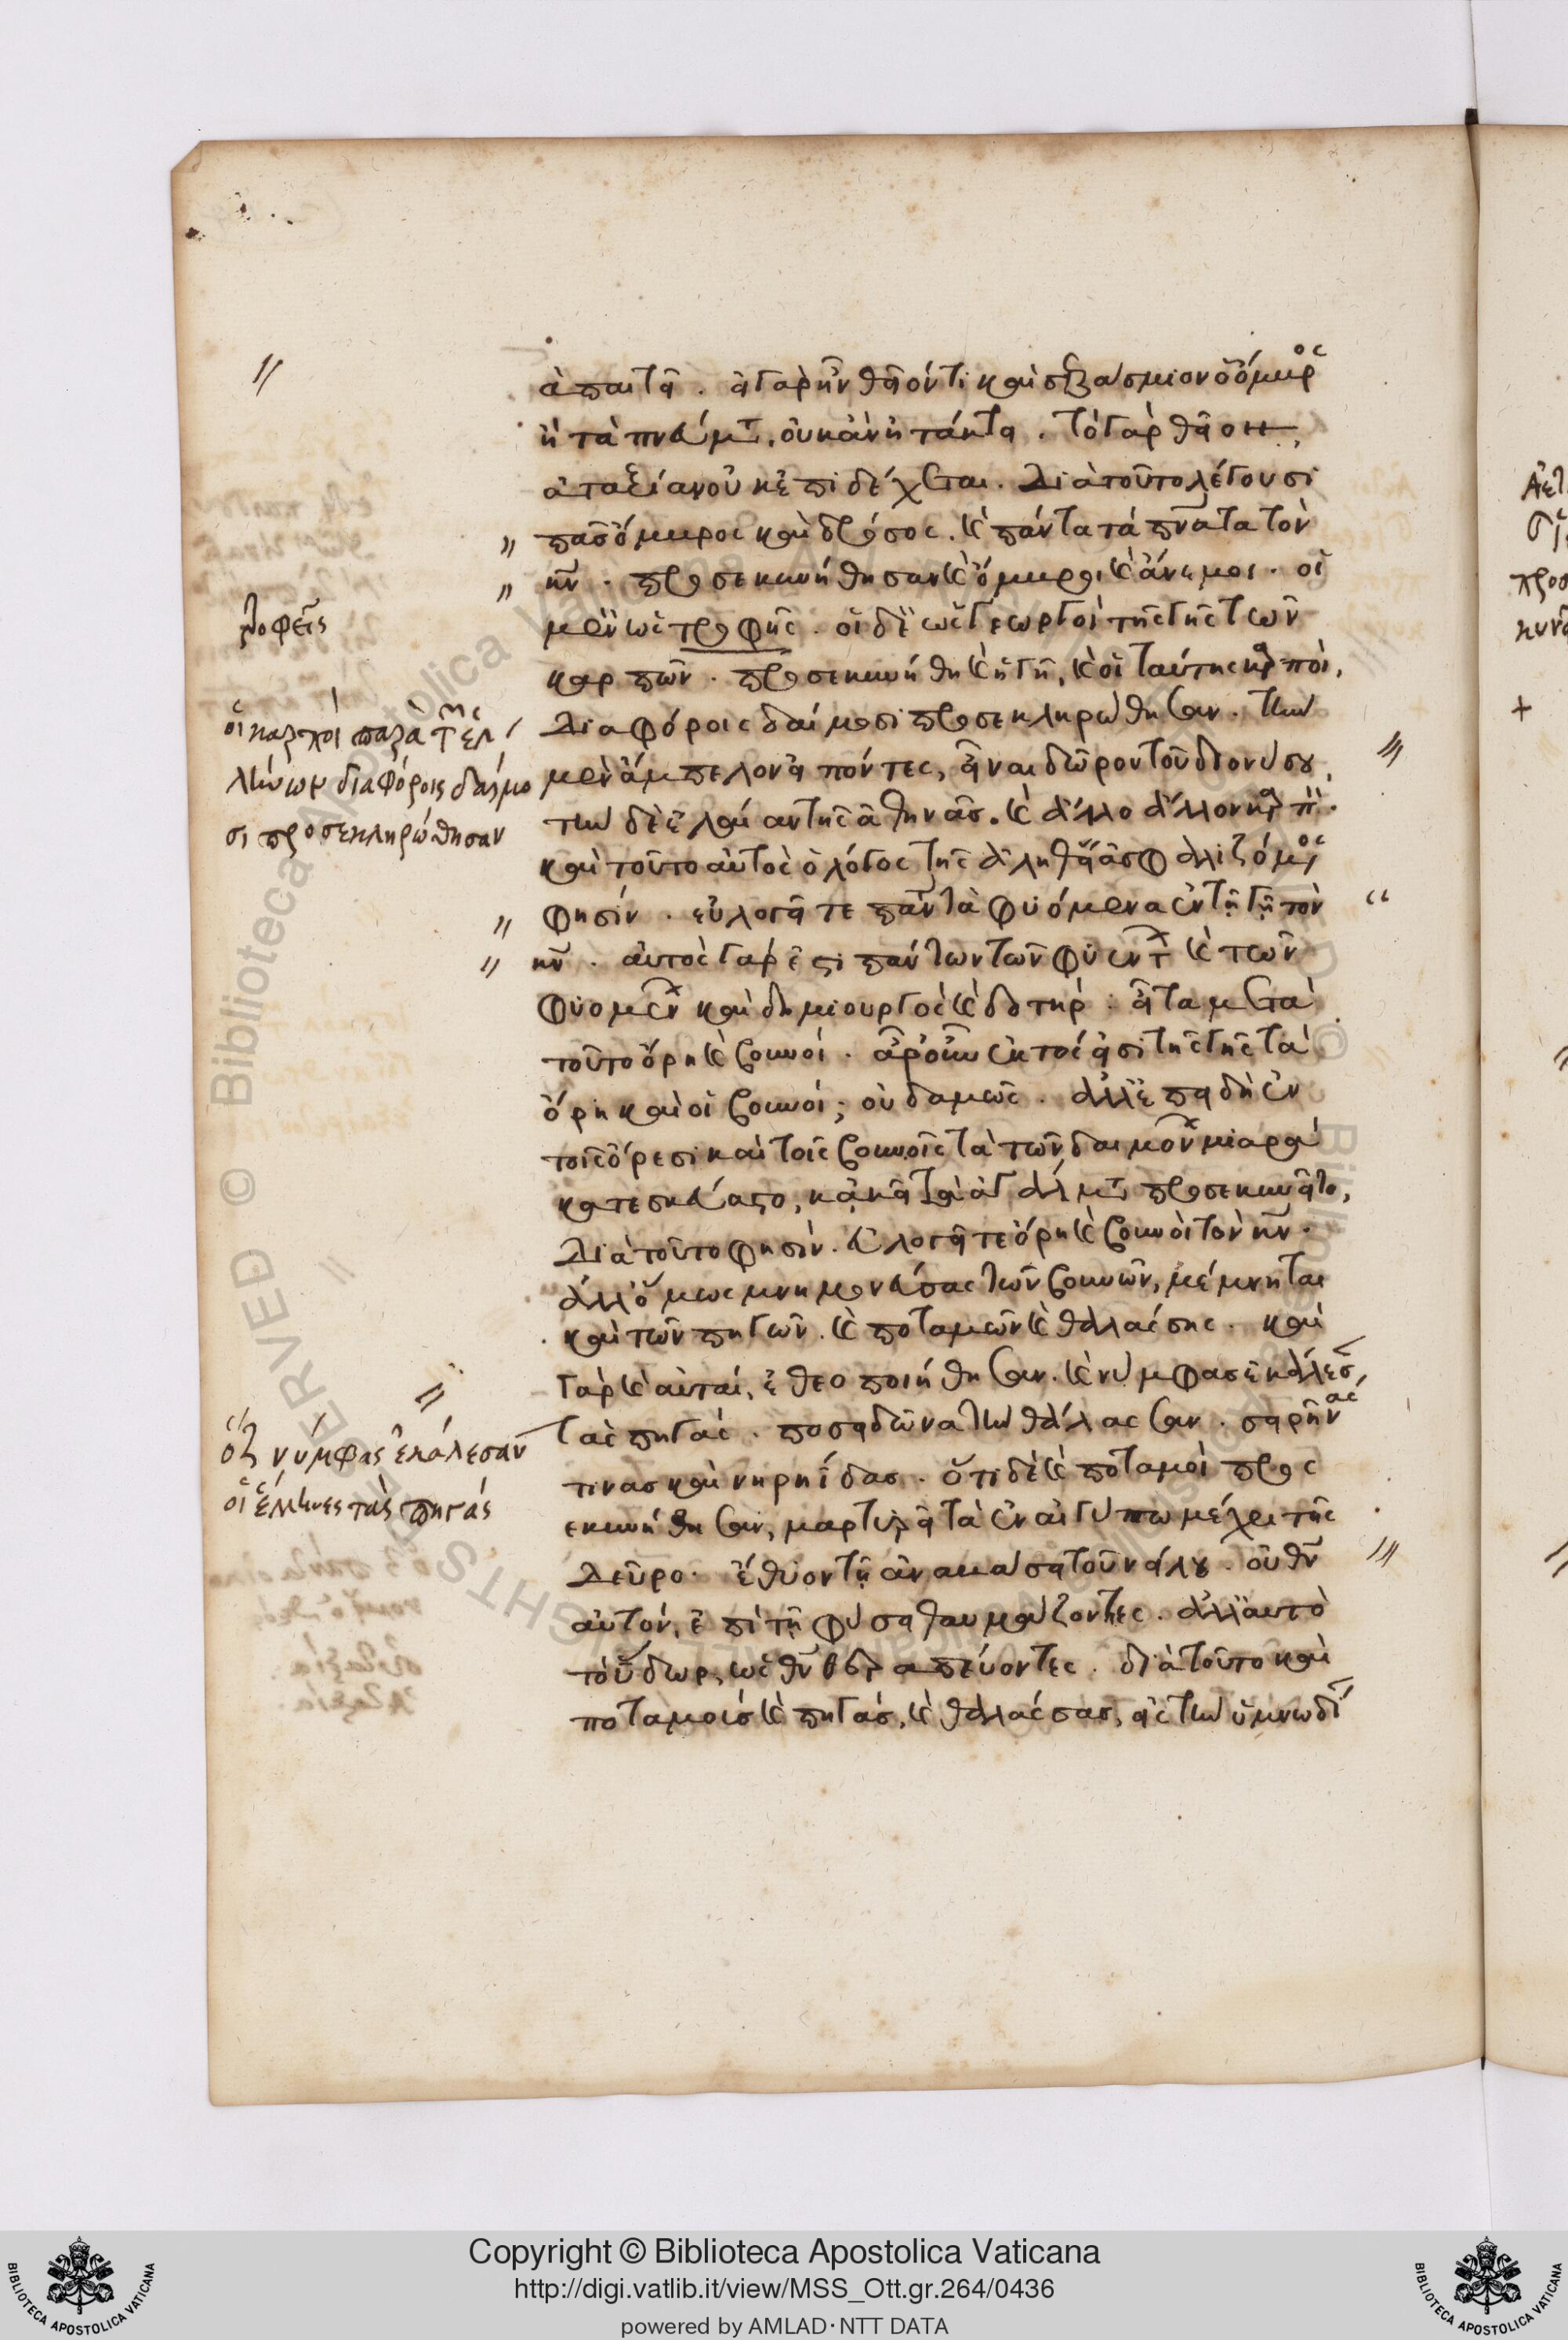 ἀπαιτεῖ. εἰ γὰρ ἦν θεῖόν τι καὶ σεβάσμιον ὁ ὄμβρος
ἢ τὰ πνεύματα, οὐκ ἂν ἠτάκτει. τὸ γὰρ θεῖον
ἀταξίαν οὐκ ἐπιδέχεται. Διὰ τοῦτο λέγουσι
πᾶς ὄμβρος καὶ δρόσος. καὶ πάντα τὰ πνατα τὸν
κν. προσεκυνήθησαν καὶ ὄμβροι καὶ ἄνεμοι. οἱ
μὲν ὡς τροφῆς. οἱ δὲ ὡς γεωργοὶ τῆς γῆς τῶν
καρπῶν. προσεκυνήθη καὶ ἡ γῆ, καὶ οἱ ταύτης καρποὶ,
Διαφόροις δαίμοσι προσεκληρώθησαν. τὴν
μὲν ἄμπελον εἰπόντες, εἶναι δῶρον τοῦ διονύσου,
τὴν δὲ ἐλαίαν τῆς ἀθηνᾶς. καὶ ἄλλο ἄλλον
καὶ τοῦτο αὐτὸς ὁ λόγος τῆς ἀληθείας φαλιζόμενος
φησίν. εὐλογεῖτε πάντα τὰ φυόμενα ἐν τῇ γῇ τὸν
κν. αὐτὸς γάρ ἐστι πάντων τῶν φυέντων καὶ τῶν
φυομένων καὶ δημιουργὸς καὶ δοτήρ. εἶτα μετὰ
τοῦτο ὄρη καὶ βουνοί. ἆρ' οὖν ἐκτός εἰσι τῆς γῆς τὰ
ὄρη καὶ οἱ βουνοί; οὐδαμῶς. ἀλλ' ἐπειδὴ ἐν
τοῖς ὄρεσι καὶ τοῖς βουνοῖς τὰ τῶν δαιμόνων μιαρὰ
κατεσκεύαστο, κἀκεῖ τὰ ἀγάλματα προσεκυνεῖτο,
Διὰ τοῦτο φησὶν. εὐλογεῖτε ὄρη καὶ βουνοὶ τὸν κν.
ἀλλ' ὅμως μνημονεύσας τῶν βουνῶν, μέμνηται
καὶ τῶν πηγῶν. καὶ ποταμῶν καὶ θαλάσσης. καὶ
γὰρ καὶ αὐταί, ἐθεοποιήθησαν. καὶ νύμφας ἐκάλεσαν
τὰς πηγάς. ποσειδῶνα τὴν θάλασσαν. σειρῆνας
τινας καὶ νηρηΐδας. ὅτι δὲ καὶ ποταμοὶ προς
εκυνήθησαν, μαρτυρεῖ τὰ ἐν αἰγύπτω μέχρι τῆς
Δεῦρο. ἔθυον τῇ ἀναβάσει τοῦ νείλου. οὐ θν
αὐτόν, ἐπὶ τῇ φύσει θαυμάζοντες. ἀλλ' αυτὸ
τὸ ὕδωρ, ὡς θν θεραπεύοντες. διὰ τοῦτο καὶ
ποταμοὺς καὶ πηγάς, καὶ θαλάσσας, εἰς τὴν ὑμνωδί
οἱ καρποὶ παρὰ τοῖς ἑλ
λήνων διαφόροις δαίμο
σι προσεκληρώθησαν
ὅτι νύμφας ἐκάλεσαν
οἱ ἕλληνες τὰς πηγάς
Copyright © Biblioteca Apostolica Vaticana
http://digi.vatlib.it/view/MSS_Ott.gr.264/0436
powered by AMLAD·NTT DATA
BIBLIOTECA APOSTOLICA VATICANA
BIBLIOTECA APOSTOLICA VATICANA